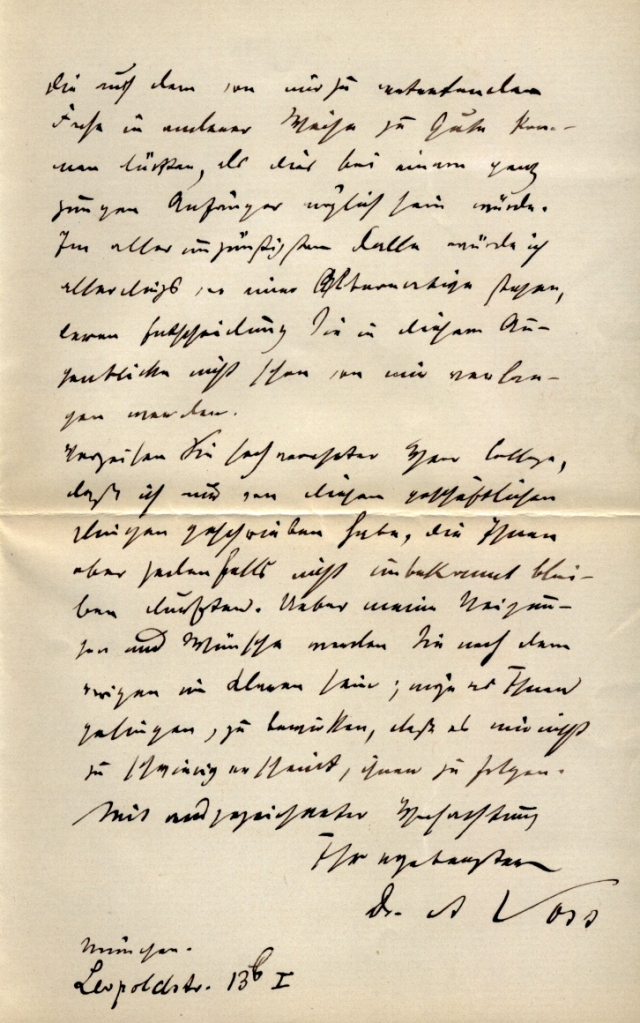 die auch dem von mir zu vertretenden
Fache in anderer Weise zu Gute kom-
men dürften, als dies bei einem ganz
jungen Anfänger möglich sein würde.
Im aller ungünstigsten Falle würde ich
allerdings vor einer Alternative stehen,
deren Entscheidung Sie in diesem Au-
genblicke nicht schon von mir verlan-
gen werden.
Verzeihen Sie hochverehrter Herr College,
daß ich nur von diesen geschäftlichen
Dingen geschrieben habe, die Ihnen
aber jedenfalls nicht unbekannt blei-
ben durften. Ueber meine Neigun-
gen und Wünsche werden Sie nach dem
vorigen im Klaren sein; möge es Ihnen
gelingen, zu bewirken, daß es mir nicht
zu schwierig erscheint, ihnen zu folgen.
Mit ausgezeichneter Hochachtung
Ihr ergebenster
Dr. A Voss
München.
Leopoldstr. 13b I